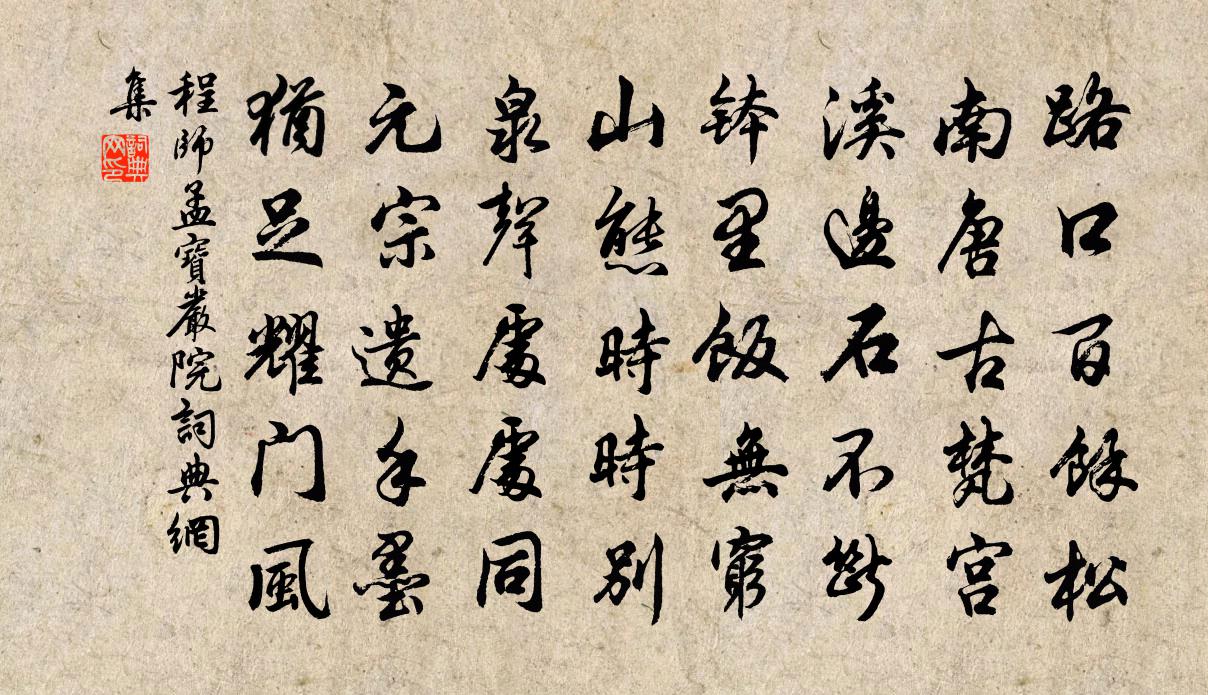 路口百餘松
南唐古梵宮
溪邊石不斷
鉢里飯無窮
山態時時別
泉聲處處同
元宗遺手墨
猶足耀门風
程師孟寶嚴院詞典網
集
詞典网印